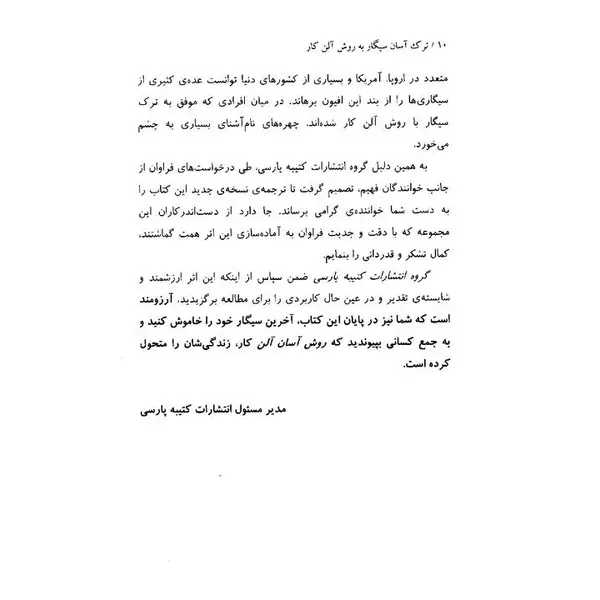 ۱۰ / ترک آسان سیگار به روش آلن کار
متعدد در اروپا، آمریکا و بسیاری از کشورهای دنیا توانست عده‌ی کثیری از
سیگاری‌ها را از بند این افیون برهاند. در میان افرادی که موفق به ترک
سیگار با روش آلن کار شده‌اند، چهره‌های نام‌آشنای بسیاری به چشم
می‌خورد.
به همین دلیل گروه انتشارات کتیبه پارسی، طی درخواست‌های فراوان از
جانب خوانندگان فهیم، تصمیم گرفت تا ترجمه‌ی نسخه‌ی جدید این کتاب را
به دست شما خواننده‌ی گرامی برساند. جا دارد از دست‌اندرکاران این
مجموعه که با دقت و جدیت فراوان به آماده‌سازی این اثر همت گماشتند،
کمال تشکر و قدردانی را بنمایم.
گروه انتشارات کتیبه پارسی ضمن سپاس از اینکه این اثر ارزشمند و
شایسته‌ی تقدیر و در عین حال کاربردی را برای مطالعه برگزیدید، آرزومند
است که شما نیز در پایان این کتاب، آخرین سیگار خود را خاموش کنید و
به جمع کسانی بپیوندید که روش آسان آلن کار، زندگی‌شان را متحول
کرده است.
مدیر مسئول انتشارات کتیبه پارسی